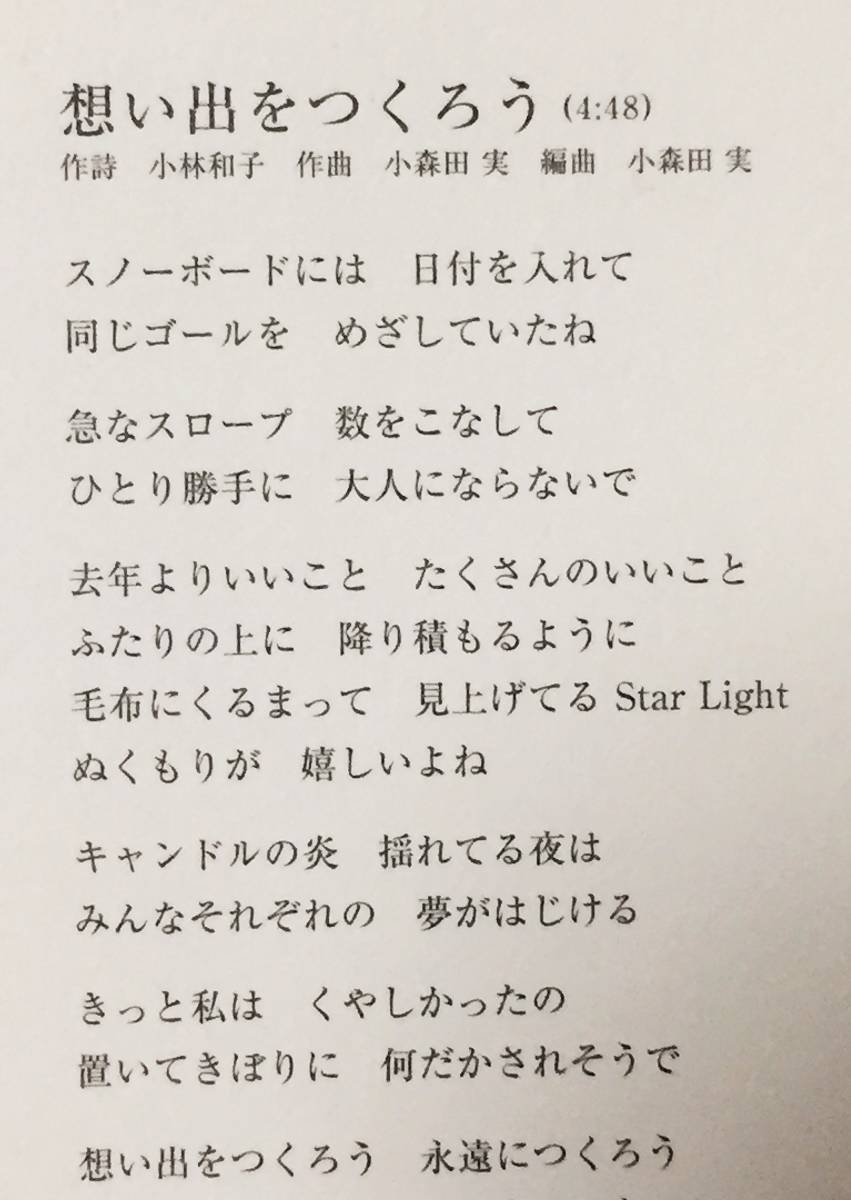 想い出をつくろう (4:48)
作詩　小林和子　作曲　小森田 実　編曲　小森田 実
スノーボードには　日付を入れて
同じゴールを　めざしていたね
急なスロープ　数をこなして
ひとり勝手に　大人にならないで
去年よりいいこと　たくさんのいいこと
ふたりの上に　降り積もるように
毛布にくるまって　見上げてる Star Light
ぬくもりが　嬉しいよね
キャンドルの炎　揺れてる夜は
みんなそれぞれの　夢がはじける
きっと私は　くやしかったの
置いてきぼりに　何だかされそうで
想い出をつくろう　永遠につくろう